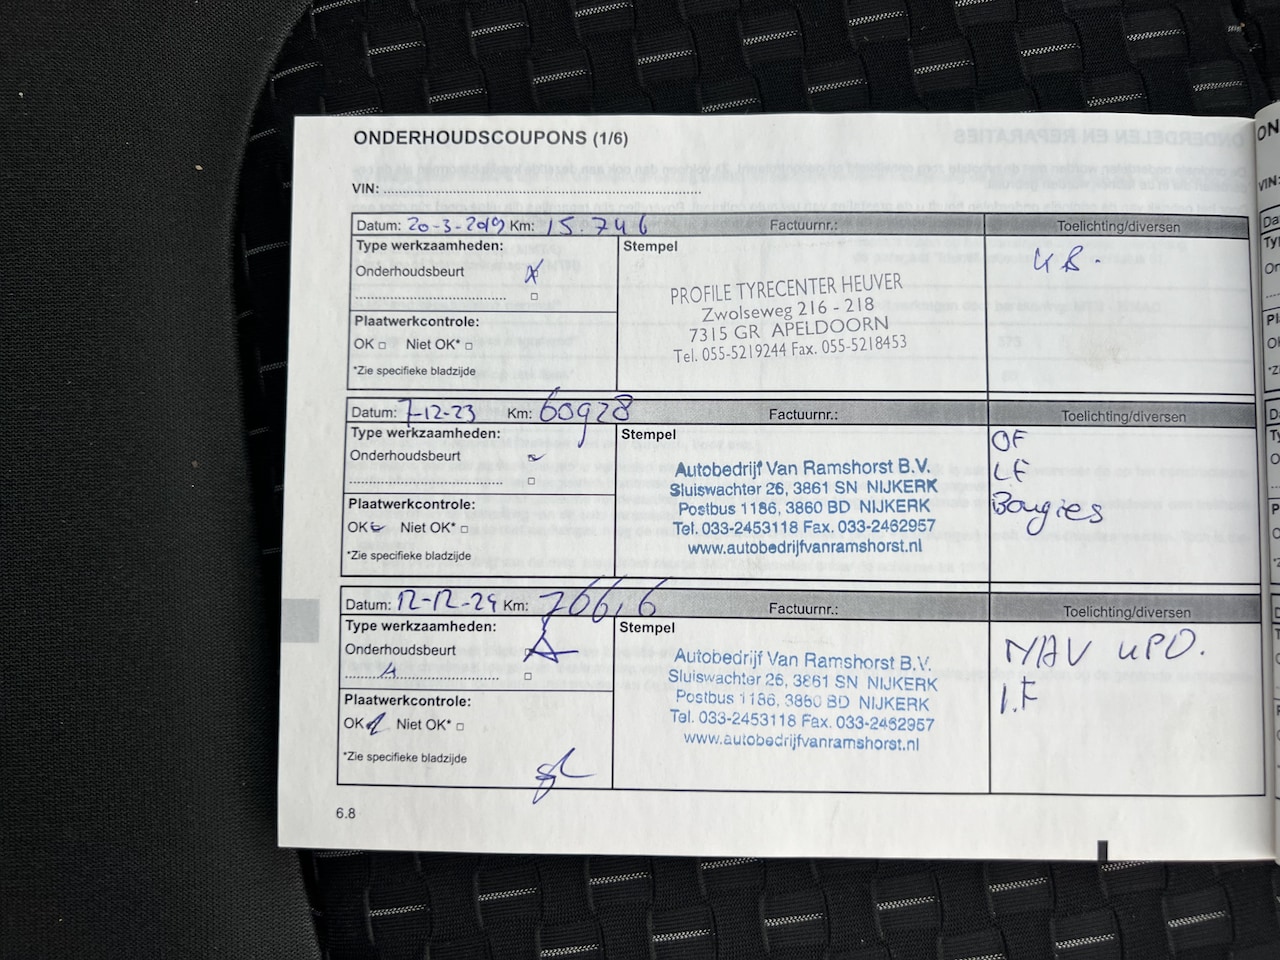 ONDERHOUDSCOUPONS (1/6)
VIN:
Datum: 20-3-2019 Km: 15.746 Factuurnr.: Toelichting/diversen
Type werkzaamheden:
Stempel
Onderhoudsbeurt
Plaatwerkcontrole:
OK Niet OK*
*Zie specifieke bladzijde
PROFILE TYRECENTER HEUVER
Zwolseweg 216 - 218
7315 GR APELDOORN
Tel. 055-5219244 Fax. 055-5218453
Datum: 7-12-23 Km: 60928 Factuurnr.: Toelichting/diversen
Type werkzaamheden:
Stempel
Onderhoudsbeurt
Plaatwerkcontrole:
OK Niet OK*
*Zie specifieke bladzijde
Autobedrijf Van Ramshorst B.V.
Sluiswachter 26, 3861 SN NIJKERK
Postbus 1186, 3860 BD NIJKERK
Tel. 033-2453118 Fax. 033-2462957
www.autobedrijfvanramshorst.nl
OF
LF
Bougies
Datum: 12-12-24 Km: 76616 Factuurnr.: Toelichting/diversen
Type werkzaamheden:
Stempel
Onderhoudsbeurt
Plaatwerkcontrole:
OK Niet OK*
*Zie specifieke bladzijde
Autobedrijf Van Ramshorst B.V.
Sluiswachter 26, 3861 SN NIJKERK
Postbus 1186, 3860 BD NIJKERK
Tel. 033-2453118 Fax. 033-2462957
www.autobedrijfvanramshorst.nl
NAV UPD.
I.F
6.8